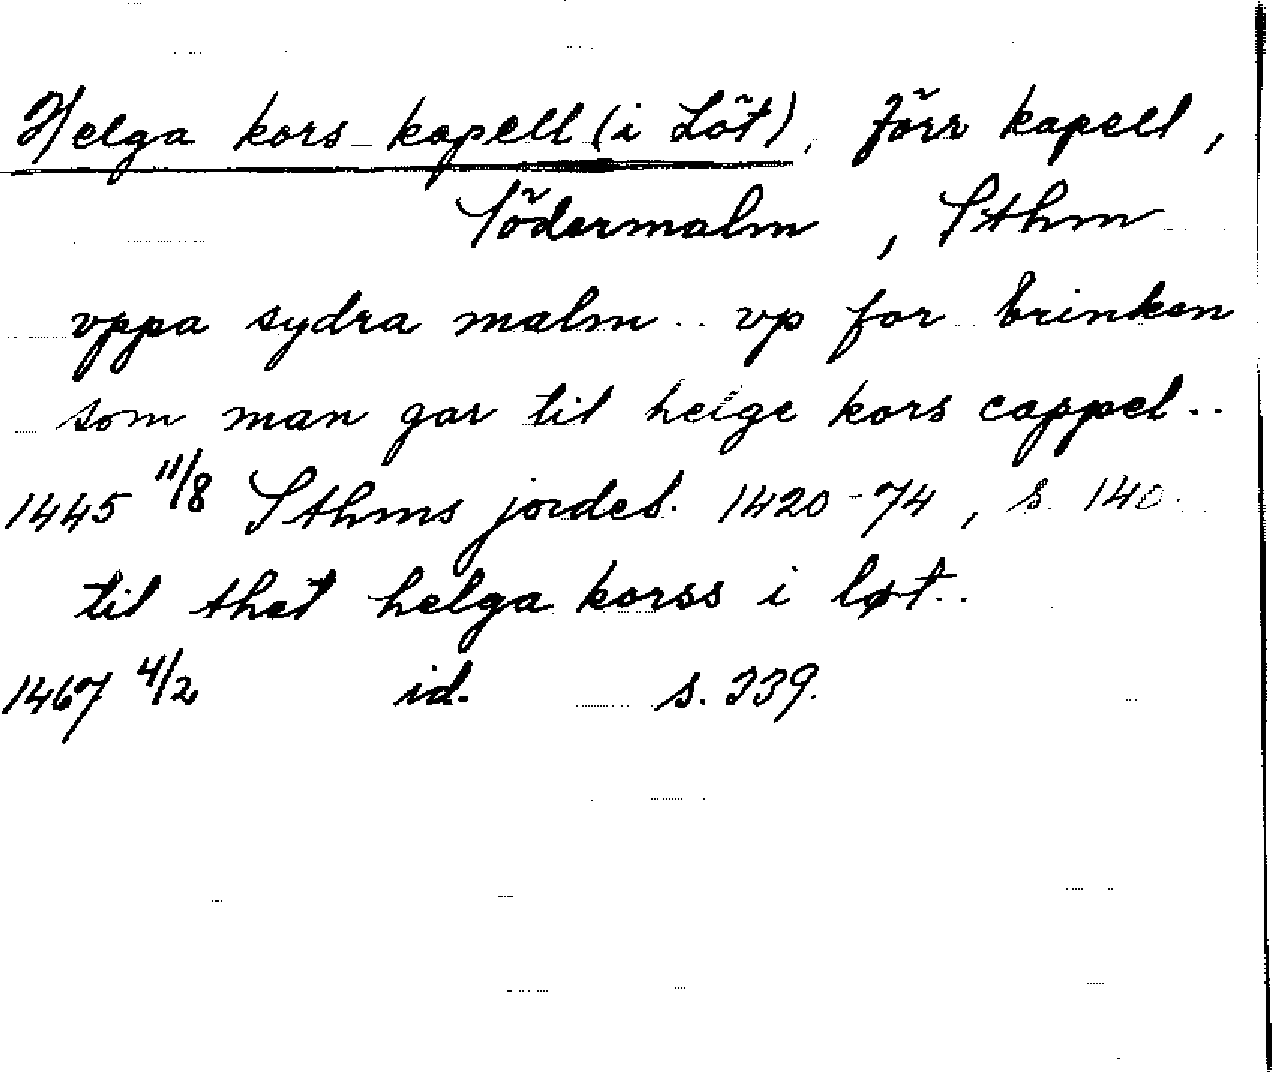 Helga kors kapell (i Löt), förr kapell,
Södermalm, Sthm
vppa sydra malm .. vp for brinken
som man gar til helge kors cappel..
1445 11/8 Sthms jordeb. 1420-74, s. 140.
til thet helga korss i løt..
1467 4/2 id. s. 339.